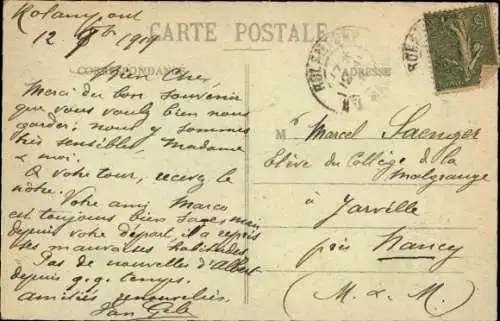 Rolampont
12 1919
CARTE POSTALE
CORRESPONDANCE
ADRESSE
Bien Cher
Merci du bon souvenir
que vous voulez bien nous
garder; nous y sommes
très sensibles Madame
& moi.
A votre tour, recevez le
nôtre.
Votre ami Marco
est toujours bien sage mais
depuis votre départ, il a repris
ses mauvaises habitudes.
Pas de nouvelles d'Albert
depuis q.q. temps.
amitiés
M Marcel Saenger
Elève du Collège de la
Malgrange
à Jarville
près Nancy
(M. & M.)